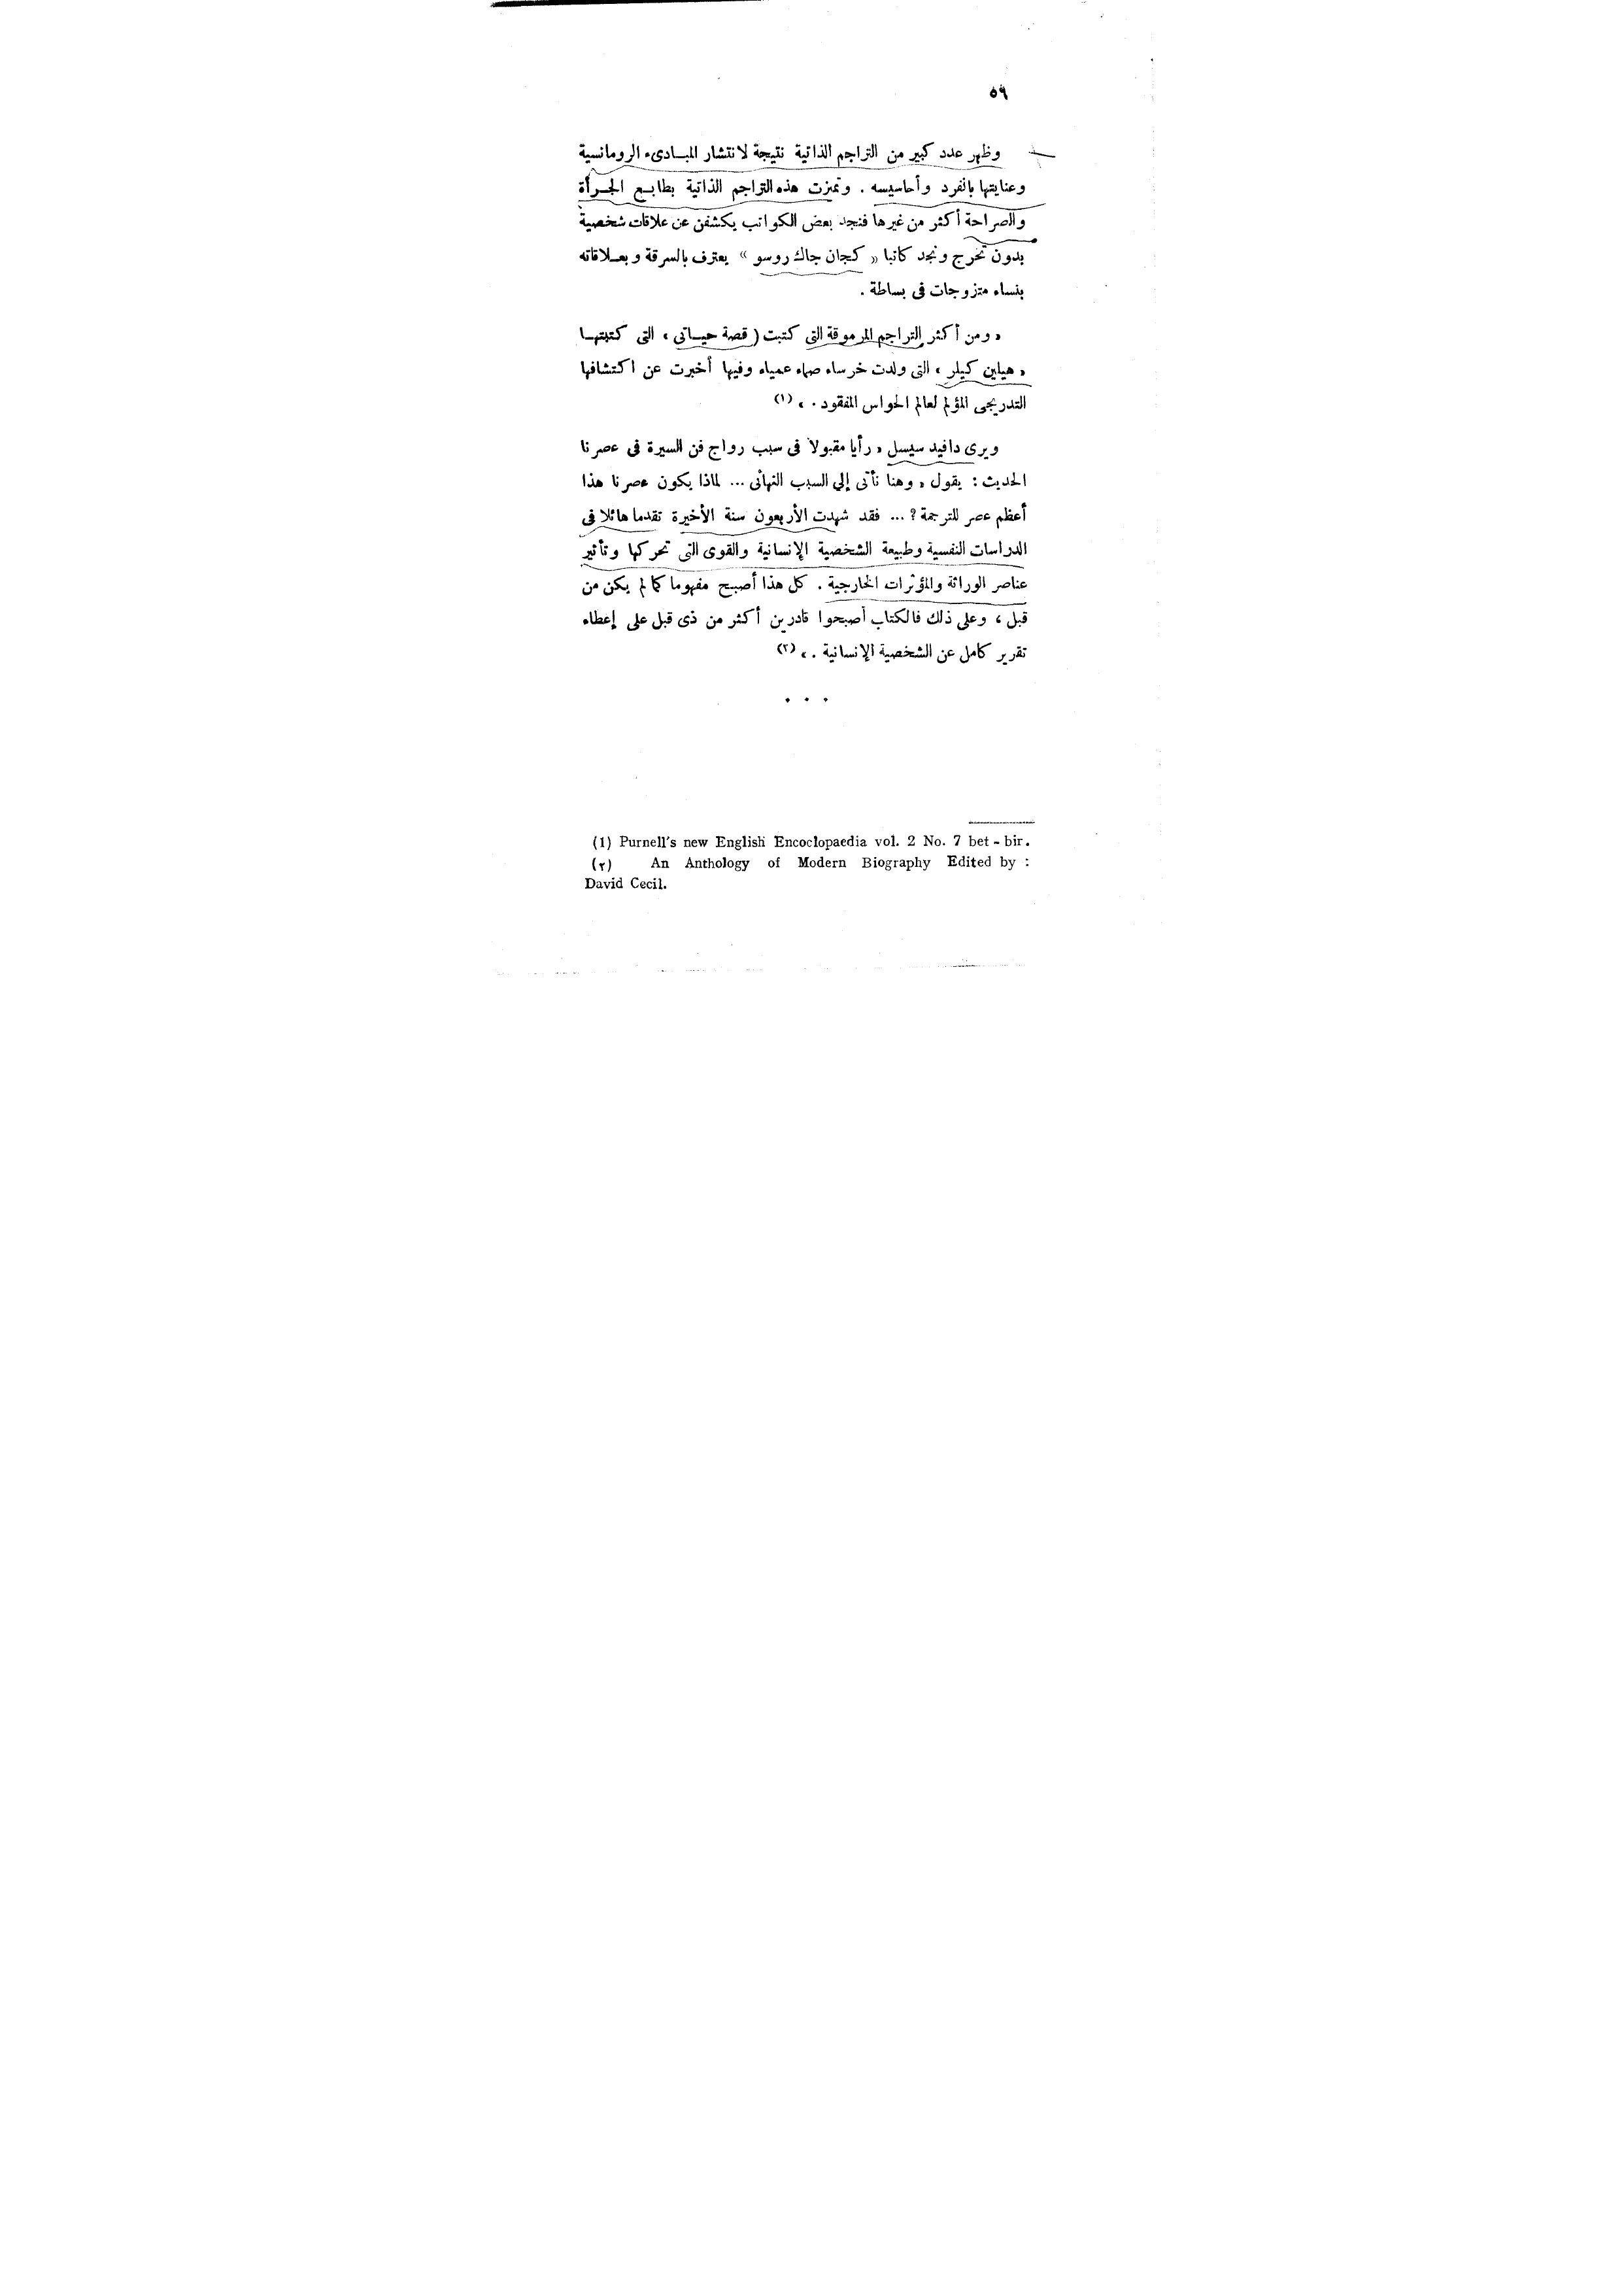 ٥٩
وظهر عدد كبير من التراجم الذاتية نتيجة لانتشار المبادىء الرومانسية
وعنايتها بالفرد وأحاسيسه . وتميزت هذه التراجم الذاتية بطابع الجرأة
والصراحة أكثر من غيرها فنجد بعض الكواتب يكشفن عن علاقات شخصية
بدون تحرج ونجد كاتبا « كجان جاك روسو » يعترف بالسرقة وبعلاقاته
بنساء متزوجات فى بساطة .
« ومن أكثر التراجم المرموقة التى كتبت ( قصة حياتى » التى كتبتها
« هيلين كيلر » التى ولدت خرساء صماء عمياء وفيها أخبرت عن اكتشافها
التدريجى المؤلم لعالم الحواس المفقود . » (١)
ويرى دافيد سيسل « رأيا مقبولا فى سبب رواج فن السيرة فى عصرنا
الحديث : يقول « وهنا نأتى إلى السبب النهائى ... لماذا يكون عصرنا هذا
أعظم عصر للترجمة ؟ ... فقد شهدت الأربعون سنة الأخيرة تقدما هائلا فى
الدراسات النفسية وطبيعة الشخصية الإنسانية والقوى التى تحركها وتأثير
عناصر الوراثة والمؤثرات الخارجية . كل هذا أصبح مفهوما كما لم يكن من
قبل ، وعلى ذلك فالكتاب أصبحوا قادرين أكثر من ذى قبل على إعطاء
تقرير كامل عن الشخصية الإنسانية . » (٢)
. . .
(1) Purnell's new English Encoclopaedia vol. 2 No. 7 bet - bir.
(٢) An Anthology of Modern Biography Edited by :
David Cecil.